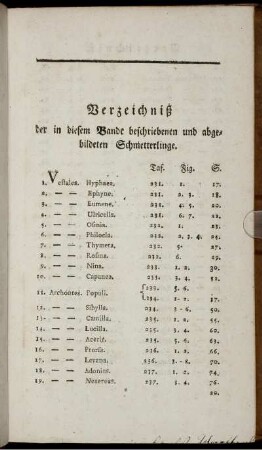 Verzeichniß
der in diesem Bande beschriebenen und abge-
bildeten Schmetterlinge.
Taf. Fig. S.
1. Vestales. Hyphaea. 231. 1. 17.
2. — — Ephyne. 231. 2. 3. 18.
3. — — Eumene. 231. 4. 5. 20.
4. — — Ulricella. 231. 6. 7. 22.
5. — — Osinia. 232. 1. 23.
6. — — 232. 2. 3. 4. 25.
7. — — Thymeta. 232. 5. 27.
8. — — Rosina. 232. 6. 29.
9. — — Nina. 233. 1. 2. 30.
10. — — 233. 3. 4. 32.
11. Archontes. Populi. 233. 5. 6.
234. 1. 2.
12. — — Sibylla. 234. 3. 4.
13. — — Camilla. 235. 1. 2.
14. — — Lucilla. 235. 3. 4. 62.
15. — — Aceris. 235. 5. 6. 64.
16. — — Prorsa. 236. 1. 2. 66.
17. — — Levana. 236. 70.
18. — — 237. 1. 2. 74.
19. — — 237. 3. 4. 76.